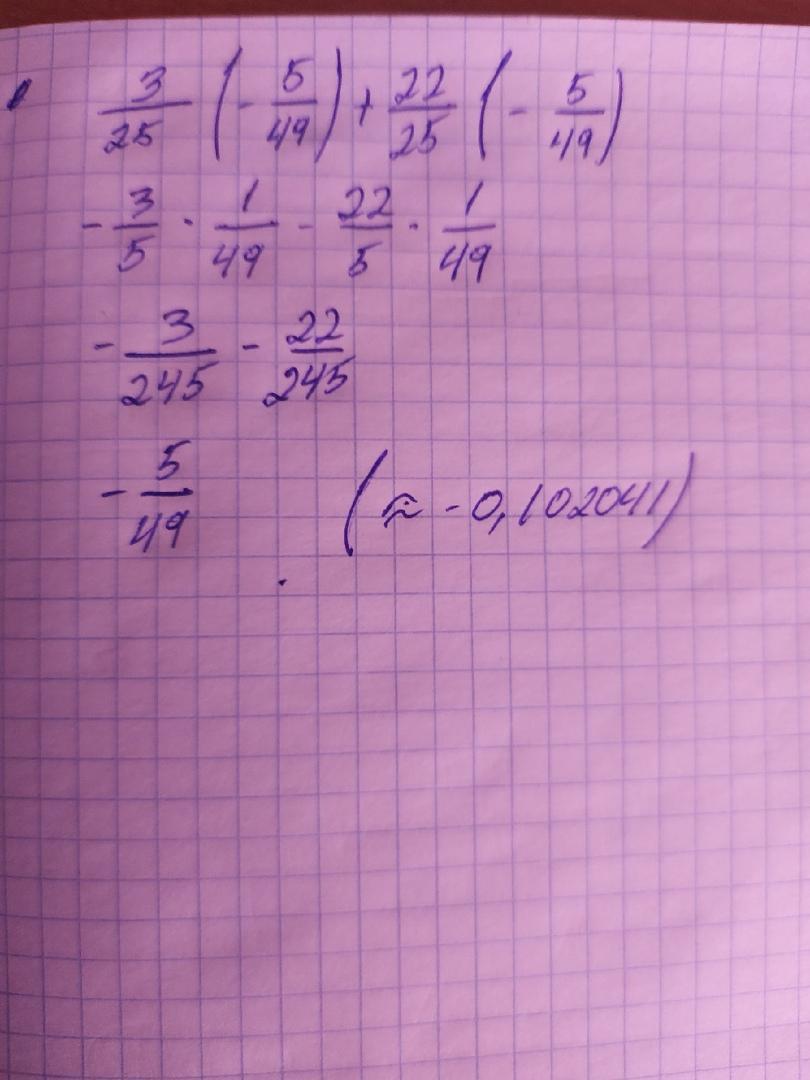 3/25 (- 5/49) + 22/25 (- 5/49)
- 3/5 · 1/49 - 22/5 · 1/49
- 3/245 - 22/245
- 5/49 (≈ -0,102041)